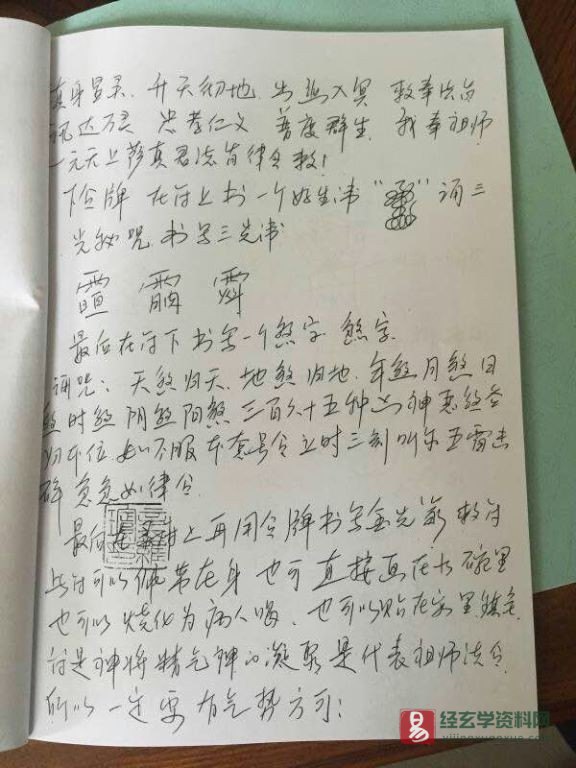 真身显灵 升天彻地 出幽入冥 救奉法旨
讯达万灵 忠孝仁义 普度群生 我奉祖师
一元天上萨真君法旨律令敕!
下令牌 在符上书一个好生讳“ ”诵三
光秘咒 书写三光讳
最后在符下书写一个煞字 煞字
诵咒: 天煞归天 地煞归地 年煞月煞日
煞时煞 阴煞阳煞 三百六十五种凶神恶煞各
归本位 如不服本套号令立时三刻叫尔五雷击
碎 急急如律令
最后在 上再用令牌书写金光篆 敕符
此符可以佩带在身 也可直接画在水碗里
也可以烧化为病人喝、也可以贴在家里镇宅
符是神将精气神的凝聚是代表祖师法令
所以一定要有气势方可:
易 经玄学资料网